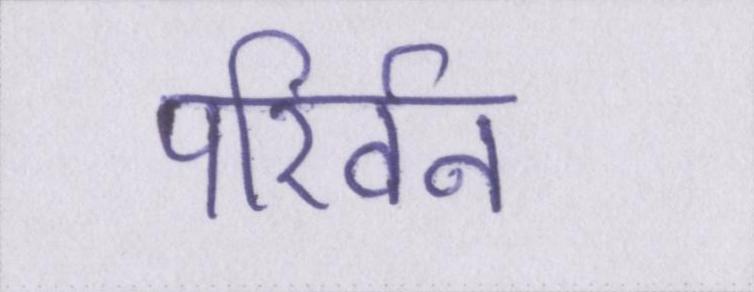 परिर्वन